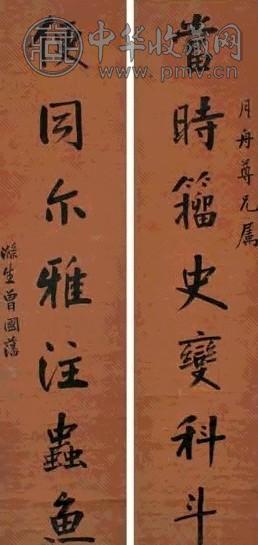 中华收藏网
www.pmv.cn
月舟尊兄屬
當時籀史變科斗
同尔雅注蟲魚
滌生曾國藩